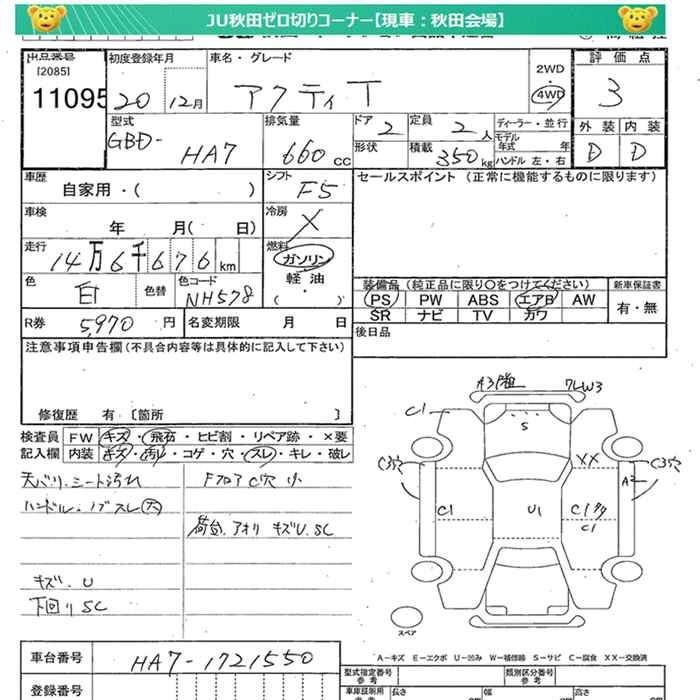 JU秋田ゼロ切りコーナー【現車：秋田会場】
出品番号
[2085]
11095
初度登録年月
20 12月
車名・グレード
アクティ T
2WD
4WD
評価点
3
外装 内装
D D
型式
GBD-
HA7
排気量
660 cc
ドア 2
形状
定員 2 人
積載 350 kg
ディーラー・並行
モデル年式 年
ハンドル 左・右
車歴
自家用・( )
シフト
F5
セールスポイント (正常に機能するものに限ります)
車検
年 月( 日)
冷房
×
走行
14万6千676km
燃料
ガソリン
軽油
( ・ )
色
白
色替
色コード
NH578
装備品(純正品に限り○をつけてください)
PS PW ABS エアB AW
SR ナビ TV カワ
新車保証書
有・無
R券 5,970 円
名変期限 月 日
後日品
注意事項申告欄(不具合内容等は具体的に記入して下さい)
修復歴 有〔箇所 〕
検査員 FW キズ・飛石・ヒビ割・リペア跡・×要
記入欄 内装 キズ・汚レ・コゲ・穴・スレ・キレ・破レ
天バリ.シート汚れ
ハンドル.ノブスレ(大)
キズ.U
下回りSC
Fフロア C穴 小
荷台.アオリ キズU.SC
A3
フLW3
C1
S
C3穴
XX
C3穴
A2
C1
U1
C1
C1
スペア
A－キズ E－エクボ U－凹み W－補修跡 S－サビ C－腐食 XX－交換済
車台番号 HA7-1721550
登録番号
型式指定番号
参考
類別区分番号
参考
車庫証明用
長さ
幅
高さ